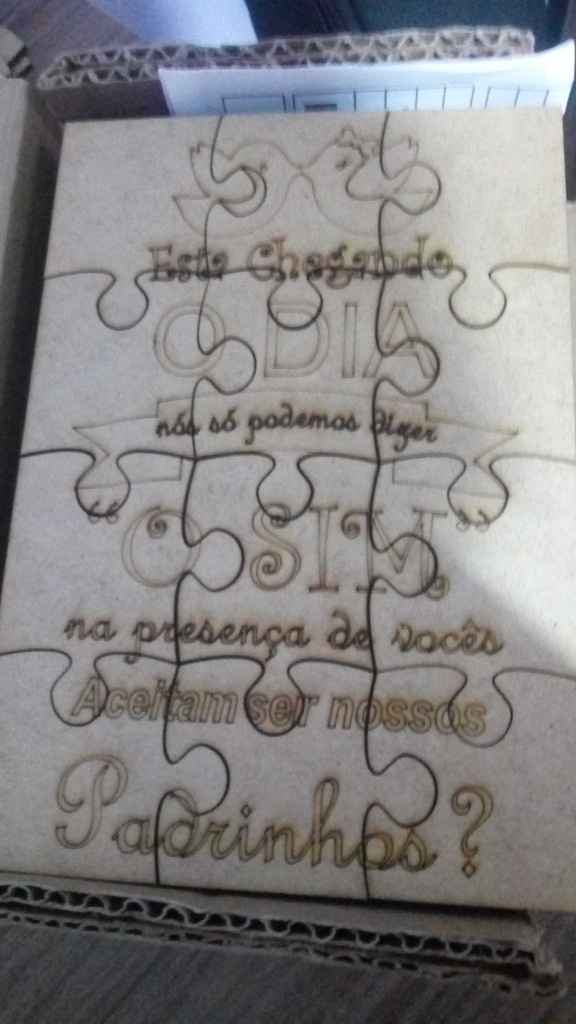 Esta Chegando
O DIA
nós só podemos dizer
“O SIM”
na presença de vocês
Aceitam ser nossos
Padrinhos?